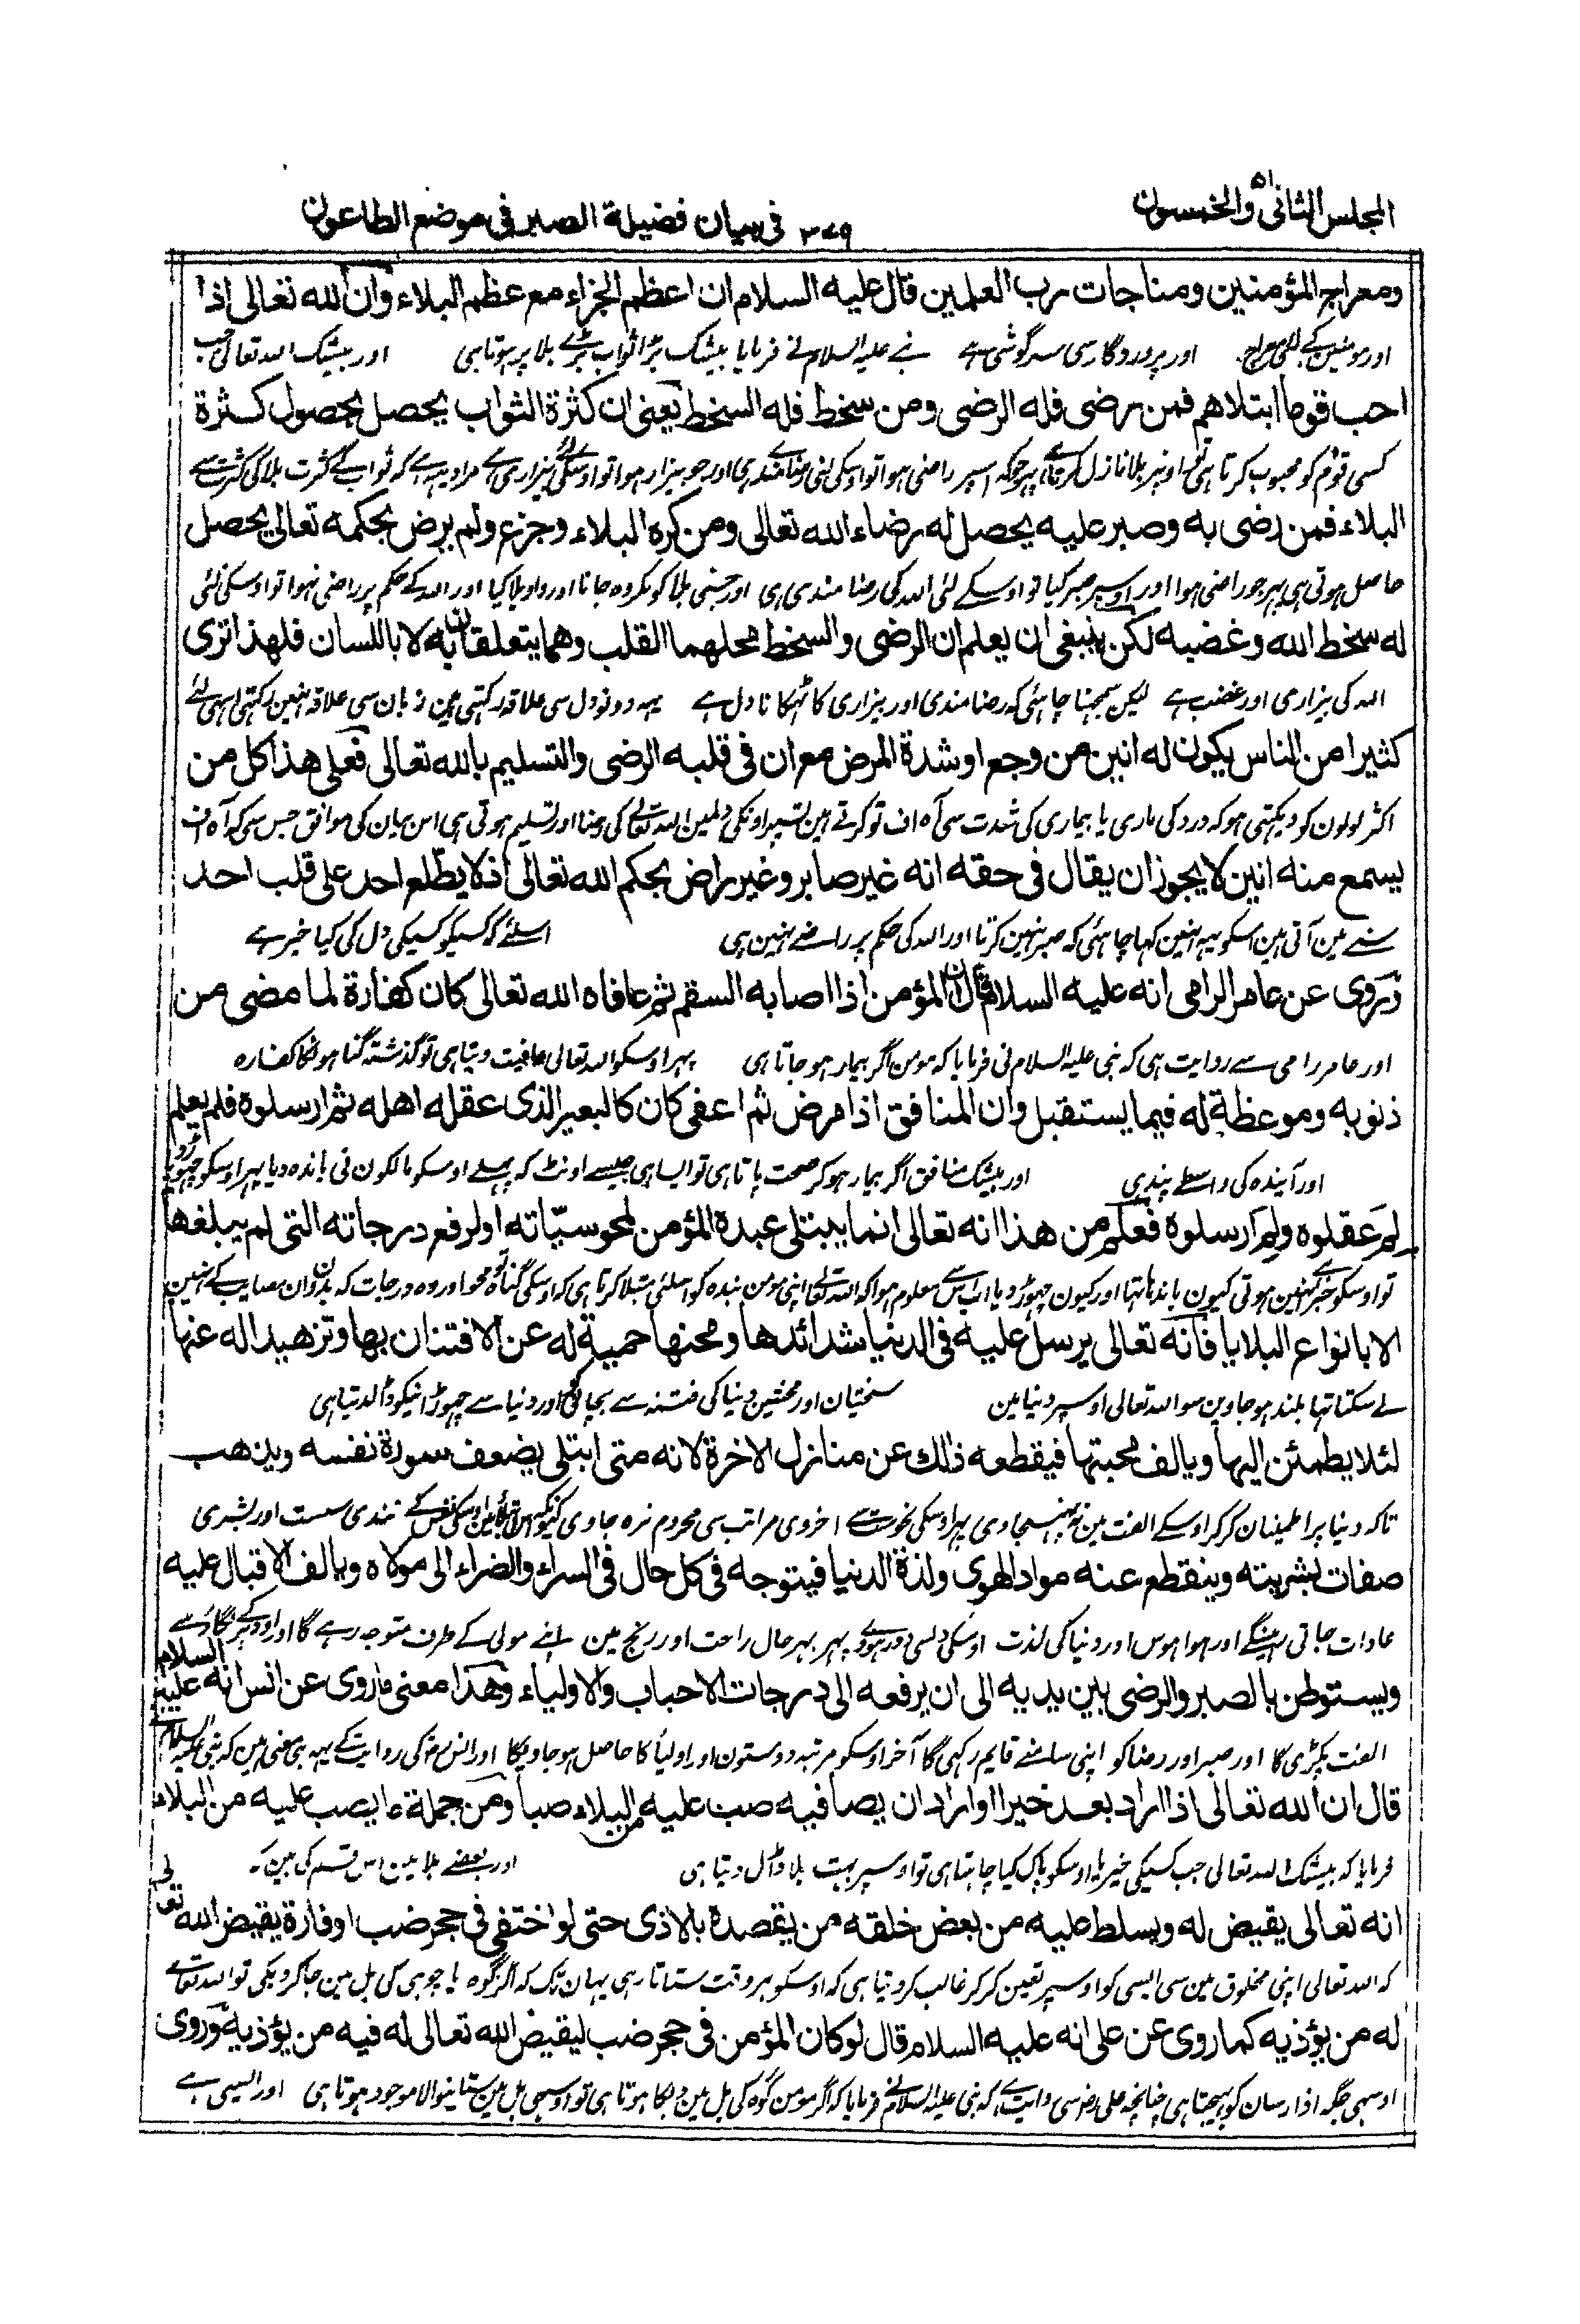 المجلس الثانی والخمسون
۳۷۹ فی بیان فضیلة الصبر فی موضع الطاعون
ومعراج المؤمنین ومناجات رب العلمین قال علیه السلام ان اعظم الجزاء مع عظم البلاء وان الله تعالی اذا
اور مومنین کے لئی معراج اور پروردگار سی سرگوشی ہے نبے علیہ السلام نے فرمایا بیشک بڑا ثواب بڑے بلا پر ہوتا ہی اور بیشک اللہ تعالی جب
احب قوما ابتلاهم فمن رضی فله الرضی ومن سخط فله السخط یعنی ان کثرة الثواب یحصل بحصول کثرة
کسی قوم کو محبوب کرتا ہی تو اونپر بلا نازل کرتا ہے پہر جو کہ اسپر راضی ہوا تو اوسکی لئی رضامندی ہی اور جو بیزار ہوا تو اوسکی لئے بیزاری ہے مراد یہہ ہے کہ ثواب کے کثرت بلا کی کثرت سے
البلاء فمن رضی به وصبر علیه یحصل له رضاء الله تعالی ومن کره البلاء وجزع ولم یرض بحکمه تعالی یحصل
حاصل ہوتی ہی پہر جو راضی ہوا اور اوسپر صبر کیا تو اوسکے لئی اللہ کی رضا مندی ہی اور جسنی بلا کو مکروہ جانا اور واویلا کیا اور اللہ کے حکم پر راضی نہوا تو اوسکی لئی
له سخط الله وغضبه لکن ینبغی ان یعلم ان الرضی والسخط محلهما القلب وهما یتعلقان به لا باللسان فلهذا تری
اللہ کی بیزاری اور غضب ہے لیکن سمجہنا چاہئی کہ رضامندی اور بیزاری کا ٹہکانا دل ہے یہہ دونو دل سی علاقہ رکہتی ہین زبان سی علاقہ نہین رکہتی اسی لئے
کثیرا من الناس یکون له انین من وجع او شدة المرض مع ان فی قلبه الرضی والتسلیم بالله تعالی فعلی هذا کل من
اکثر لوگون کو دیکہتی ہو کہ درد کی ماری یا بیماری کی شدت سی آہ اف تو کرتے ہین تسپر اونکی دلمین اللہ تعالے کی رضا اور تسلیم ہوتی ہی اس بیان کی موافق جس سی کہ آہ اف
یسمع منه انین لا یجوز ان یقال فی حقه انه غیر صابر وغیر راض بحکم الله تعالی اذ لا یطلع احد علی قلب احد
سننے مین آتی ہین اسکو یہہ نہین کہا چاہئی کہ صبر نہین کرتا اور اللہ کی حکم پر راضے نہین ہی اسلئے کہ کسیکو کسیکی دل کی کیا خبر ہے
وروی عن عامر الرامی انه علیه السلام قال ان المؤمن اذا اصابه السقم ثم عافاه الله تعالی کان کفارة لما مضی من
اور عامر رامی سے روایت ہی کہ نبی علیہ السلام نی فرمایا کہ مومن اگر بیمار ہو جاتا ہی پہر اوسکو اللہ تعالی عافیت دیتا ہی تو گذشتہ گناہونکا کفارہ
ذنوبه وموعظة له فیما یستقبل وان المنافق اذا مرض ثم اعفی کان کالبعیر الذی عقله اهله ثم ارسلوه فلم یعلم
اور آیندہ کی واسطے پند ہی اور بیشک منافق اگر بیمار ہو کر صحت پاتا ہی تو ایسا ہی جیسے اونٹ کہ پہلے اوسکو مالکون نی باندہ دیا پہر اوسکو چہوڑ دیا
لم عقلوه ولم ارسلوه فعلم من هذا انه تعالی انما یبتلی عبده المؤمن لمحو سیّاته او لرفع درجاته التی لم یبلغها
تو اوسکو خبر نہین ہوتی کیون باندہا تہا اور کیون چہوڑ دیا اب اس سے معلوم ہوا کہ اللہ تعالے اپنی مومن بندہ کو اسلئی مبتلا کرتا ہی کہ اوسکی گناہ محو اور وہ درجات کہ بدون ان مصایب کے نہین
الا بانواع البلایا فانه تعالی یرسل علیه فی الدنیا شدائدها ومحنها حمیة له عن الافتنان بها وتزهیدا له عنها
لے سکتا تہا بلند ہو جاوین سو اللہ تعالی اوسپر دنیا مین سختیان اور محنتین دنیا کی فتنہ سے بچانی اور دنیا سے چہوڑانیکو ڈالدیتا ہی
لئلا یطمئن الیها ویالف محبتها فیقطعه ذلك عن منازل الاخرة لانه متی ابتلی یضعف سورة نفسه ویذهب
تاکہ دنیا پر اطمینان کر کر اوسکے الفت مین نہ پہنس جاوی پہر اوسکی نحوست سے اخروی مراتب سی محروم نرہ جاوی کیونکہ ابتلا مین اوسکی نفس کے تندی سست اور بشری
صفات بشریته وینقطع عنه مواد الهوی ولذة الدنیا فیتوجه فی کل حال فی السراء والضراء الی مولاه ویالف الاقبال علیه
عادات جاتی رہینگے اور ہوا ہوس اور دنیا کی لذت اوسکی دلسی دور ہووے پہر بہر حال راحت اور رنج مین اپنے مولی کے طرف متوجہ رہے گا اور اودہر کے لگاؤ سے
ویستوطن بالصبر والرضی بین یدیه الی ان یرفعه الی درجات الاحباب والاولیاء وهذا معنی ما روی عن انس انه علیه السلام
الفت پکڑی گا اور صبر اور رضا کو اپنی سامنے قایم رکہی گا آخر اوسکو مرتبہ دوستون اور اولیا کا حاصل ہو جاویگا اور انس رض کی روایت کے یہہ ہی معنی ہین کہ نبی علیہ السلام نے
قال ان الله تعالی اذا اراد بعبد خیرا او اراد ان یصافیه صب علیه من البلاء صبا ومن جملة ما یصب علیه من البلاء
فرمایا کہ بیشک اللہ تعالی جب کسیکی خیر یا اوسکو پاک کیا چاہتا ہی تو اوسپر بہت بلا ڈال دیتا ہی اور بعضے بلا مین اس قسم کی ہین کہ
انه تعالی یقیض له ویسلط علیه من بعض خلقه من یقصده بالاذی حتی لو اختفی فی جحر ضب او فارة یقیض الله تعالی
کہ اللہ تعالی اپنی مخلوق مین سی ایسی کو اوسپر تعین کر کر غالب کر دیتا ہی کہ اوسکو ہر وقت ستاتا رہی یہان تک کہ اگر گوہ یا چوہی کی بل مین جا کر دبکی تو اللہ تعالے
له من یؤذیه کما روی عن علی انه علیه السلام قال لو کان المؤمن فی جحر ضب لیقیض الله تعالی له فیه من یؤذیه وروی
اوسی جگہ اذا رسان کو بہیجتا ہی چنانچہ علی رض سی روایت ہے کہ نبی علیہ السلام نے فرمایا کہ اگر مومن گوہ کی بل مین دبکا ہوتا ہی تو اوسی بل مین ستانیوالا موجود ہوتا ہی اور ایسی ہے